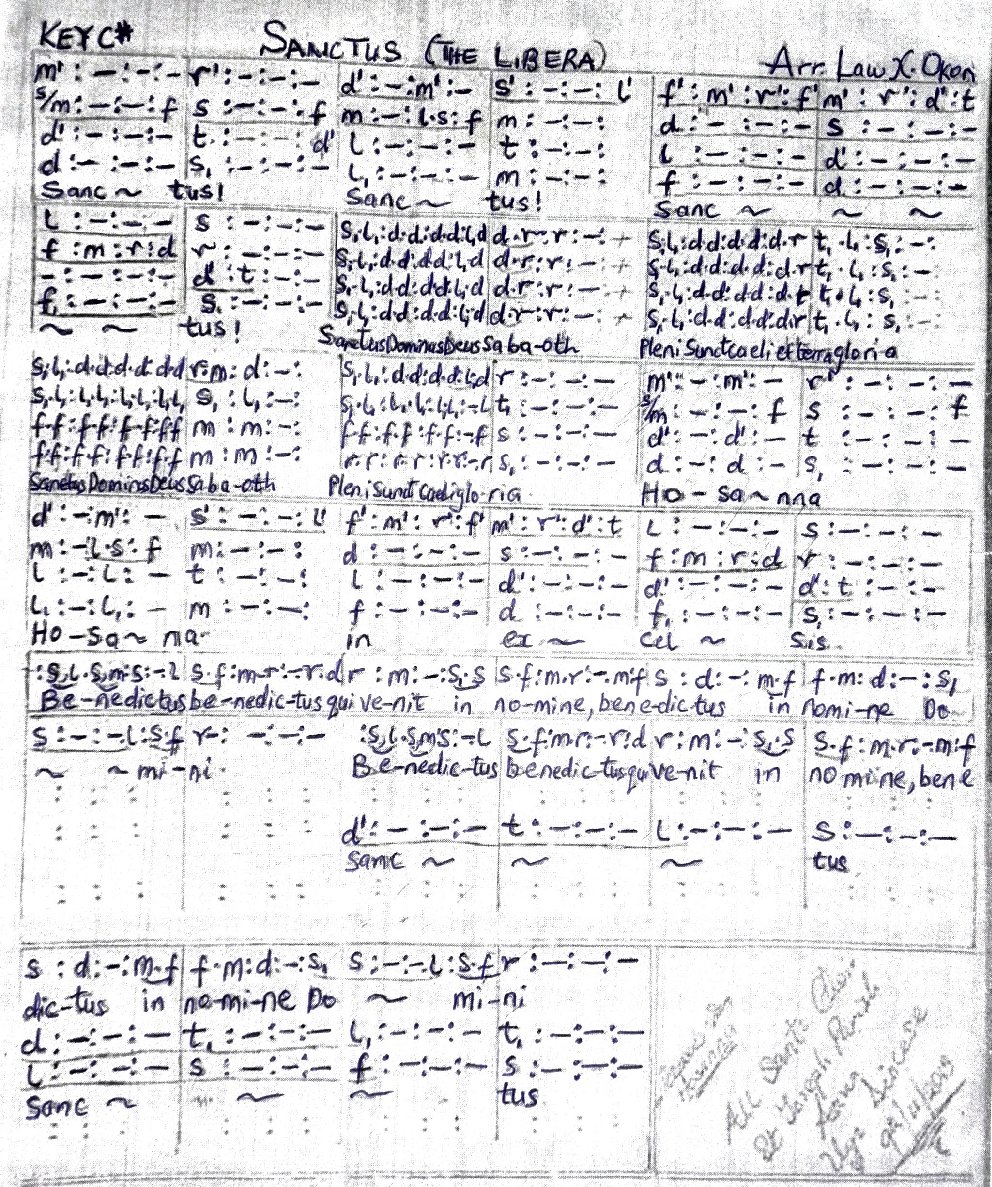 KEY C# SANCTUS (THE LIBERA) Arr. Law X. Okon
m' : – : – : – | r' : – : – : – | d' : – : m' : – | s' : – : – : l' | f' : m' : r' : f' | m' : r' : d' : t
s/m : – : – : f | s : – : – : f | m : – : l.s : f | m : – : – : | d : – : – : – | s : – : – : –
d' : – : – : – | t : – : – : d' | l : – : – : – | t : – : – : | l : – : – : – | d' : – : – : –
d : – : – : – | s, : – : – : – | l, : – : – : – | m : – : – : | f : – : – : – | d : – : – : –
Sanc ~ tus! Sanc ~ tus! Sanc ~ ~ ~
l : – : – : – | s : – : – : – | s,.l, : d.d : d.d : l,.d | d.r : r : – : | s,.l, : d.d : d.d : d.r | t,.l, : s, : – :
f : m : r : d | r : – : – : – | s,.l, : d.d : d.d : l,.d | d.r : r : – | s,.l, : d.d : d.d : d.r | t,.l, : s, : –
– : – : – : – | d' : t : – : – | s,.l, : d.d : d.d : l,.d | d.r : r : – | s,.l, : d.d : d.d : d.r | t,.l, : s, : –
f, : – : – : – | s, : – : – : – | s,.l, : d.d : d.d : l,.d | d.r : r : – | s,.l, : d.d : d.d : d.r | t,.l, : s, : –
~ ~ tus! Sanctus Dominus Deus Saba-oth Pleni Sunt caeli et terra gloria
s,.l, : d.d : d.d : d.d | r.m : d : – : | s,.l, : d.d : d.d : l,.d | r : – : – : – | m' : – : m' : – | r' : – : – : –
s,.l, : l,.l, : l,.l, : l,.l, | s, : l, : – : | s,.l, : l,.l, : l,.l, : –.l, | t, : – : – : – | s/m : – : – : f | s : – : – : f
f.f : f.f : f.f : f.f | m : m : – : | f.f : f.f : f.f : –.f | s : – : – : – | d' : – : d' : – | t : – : – : –
f.f : f.f : f.f : f.f | m : m : – : | r.r : r.r : r.r : –.r | s, : – : – : – | d : – : d : – | s, : – : – : –
Sanctus Dominus Deus Saba-oth Pleni Sunt Caeli glo-ria Ho – sa ~ nna
d' : – : m' : – | s' : – : – : l' | f' : m' : r' : f' | m' : r' : d' : t | l : – : – : – | s : – : – : –
m : – : l.s : f | m : – : – : | d : – : – : – | s : – : – : – | f : m : r : d | r : – : – : –
l : – : l : – | t : – : – : | l : – : – : – | d' : – : – : – | d' : – : – : – | d' : t : – : –
l, : – : l, : – | m : – : – : | f : – : – : – | d : – : – : – | f, : – : – : – | s, : – : – : –
Ho – Sa ~ na in ex ~ cel ~ sis
: s,.l, : s.m : s : –.l | s.f : m.r : –.r : d | r : m : – : s,.s | s.f : m.r : –.m : f | s : d : – : m.f | f.m : d : – : s,
Be-nedictus be-nedic-tus qui ve-nit in no-mine, bene-dic-tus in nomi-ne Do
s : – : –.l : s.f | r : – : – : – | : s,.l, : s.m : s : –.l | s.f : m.r : –.r : d | r : m : – : s,.s | s.f : m.r : –.m : f
~ ~ mi-ni. Be-nedic-tus benedic-tus qui ve-nit in no mine, bene
d' : – : – : – | t : – : – : – | l : – : – : – | s : – : – : –
Sanc ~ ~ ~ tus
s : d : – : m.f | f.m : d : – : s, | s : – : –.l : s.f | r : – : – : –
dic-tus in no-mi-ne Do ~ mi-ni
d : – : – : – | t, : – : – : – | l, : – : – : – | t, : – : – : –
l : – : – : – | s : – : – : – | f : – : – : – | s : – : – : –
Sanc ~ ~ ~ tus
All Saints Choir
St Joseph Parish
Diocese